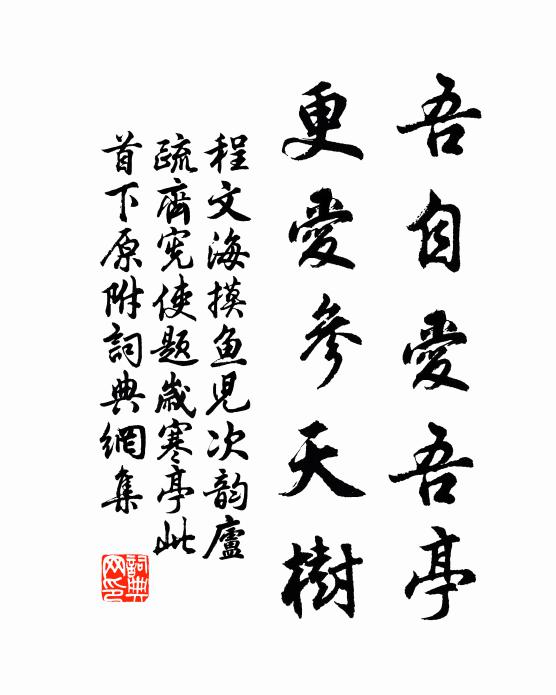 吾自愛吾亭
更愛參天樹
程文海摸魚兒次韵廬
疏齊憲使題歲寒亭此
首下原附詞典網集
詞典网印